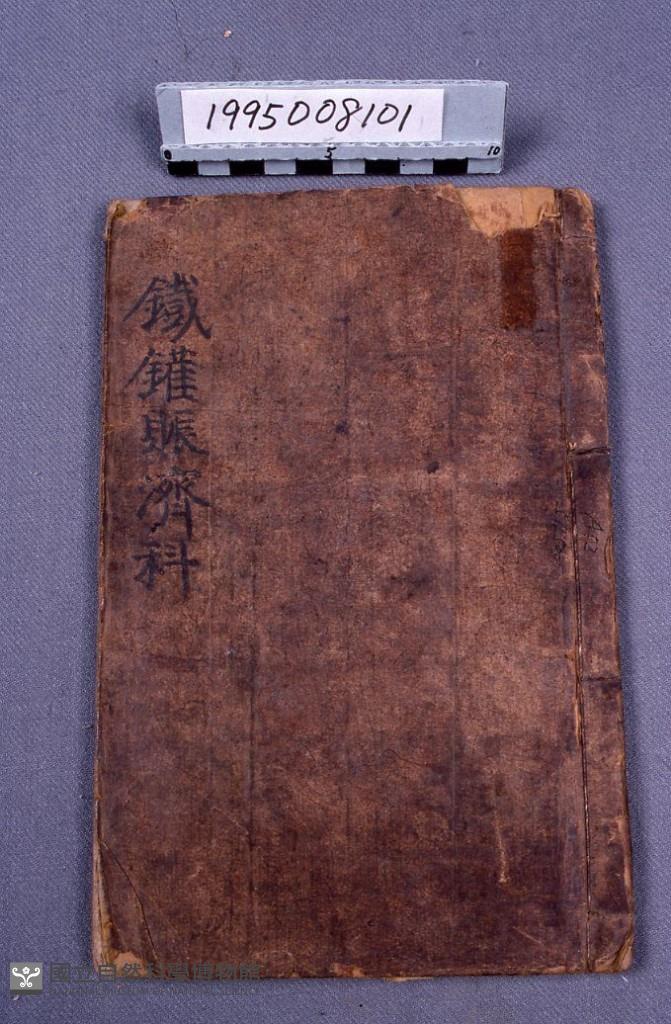 1995008101
0
5
10
鐵鏙賑濟科
國立自然科學博物館